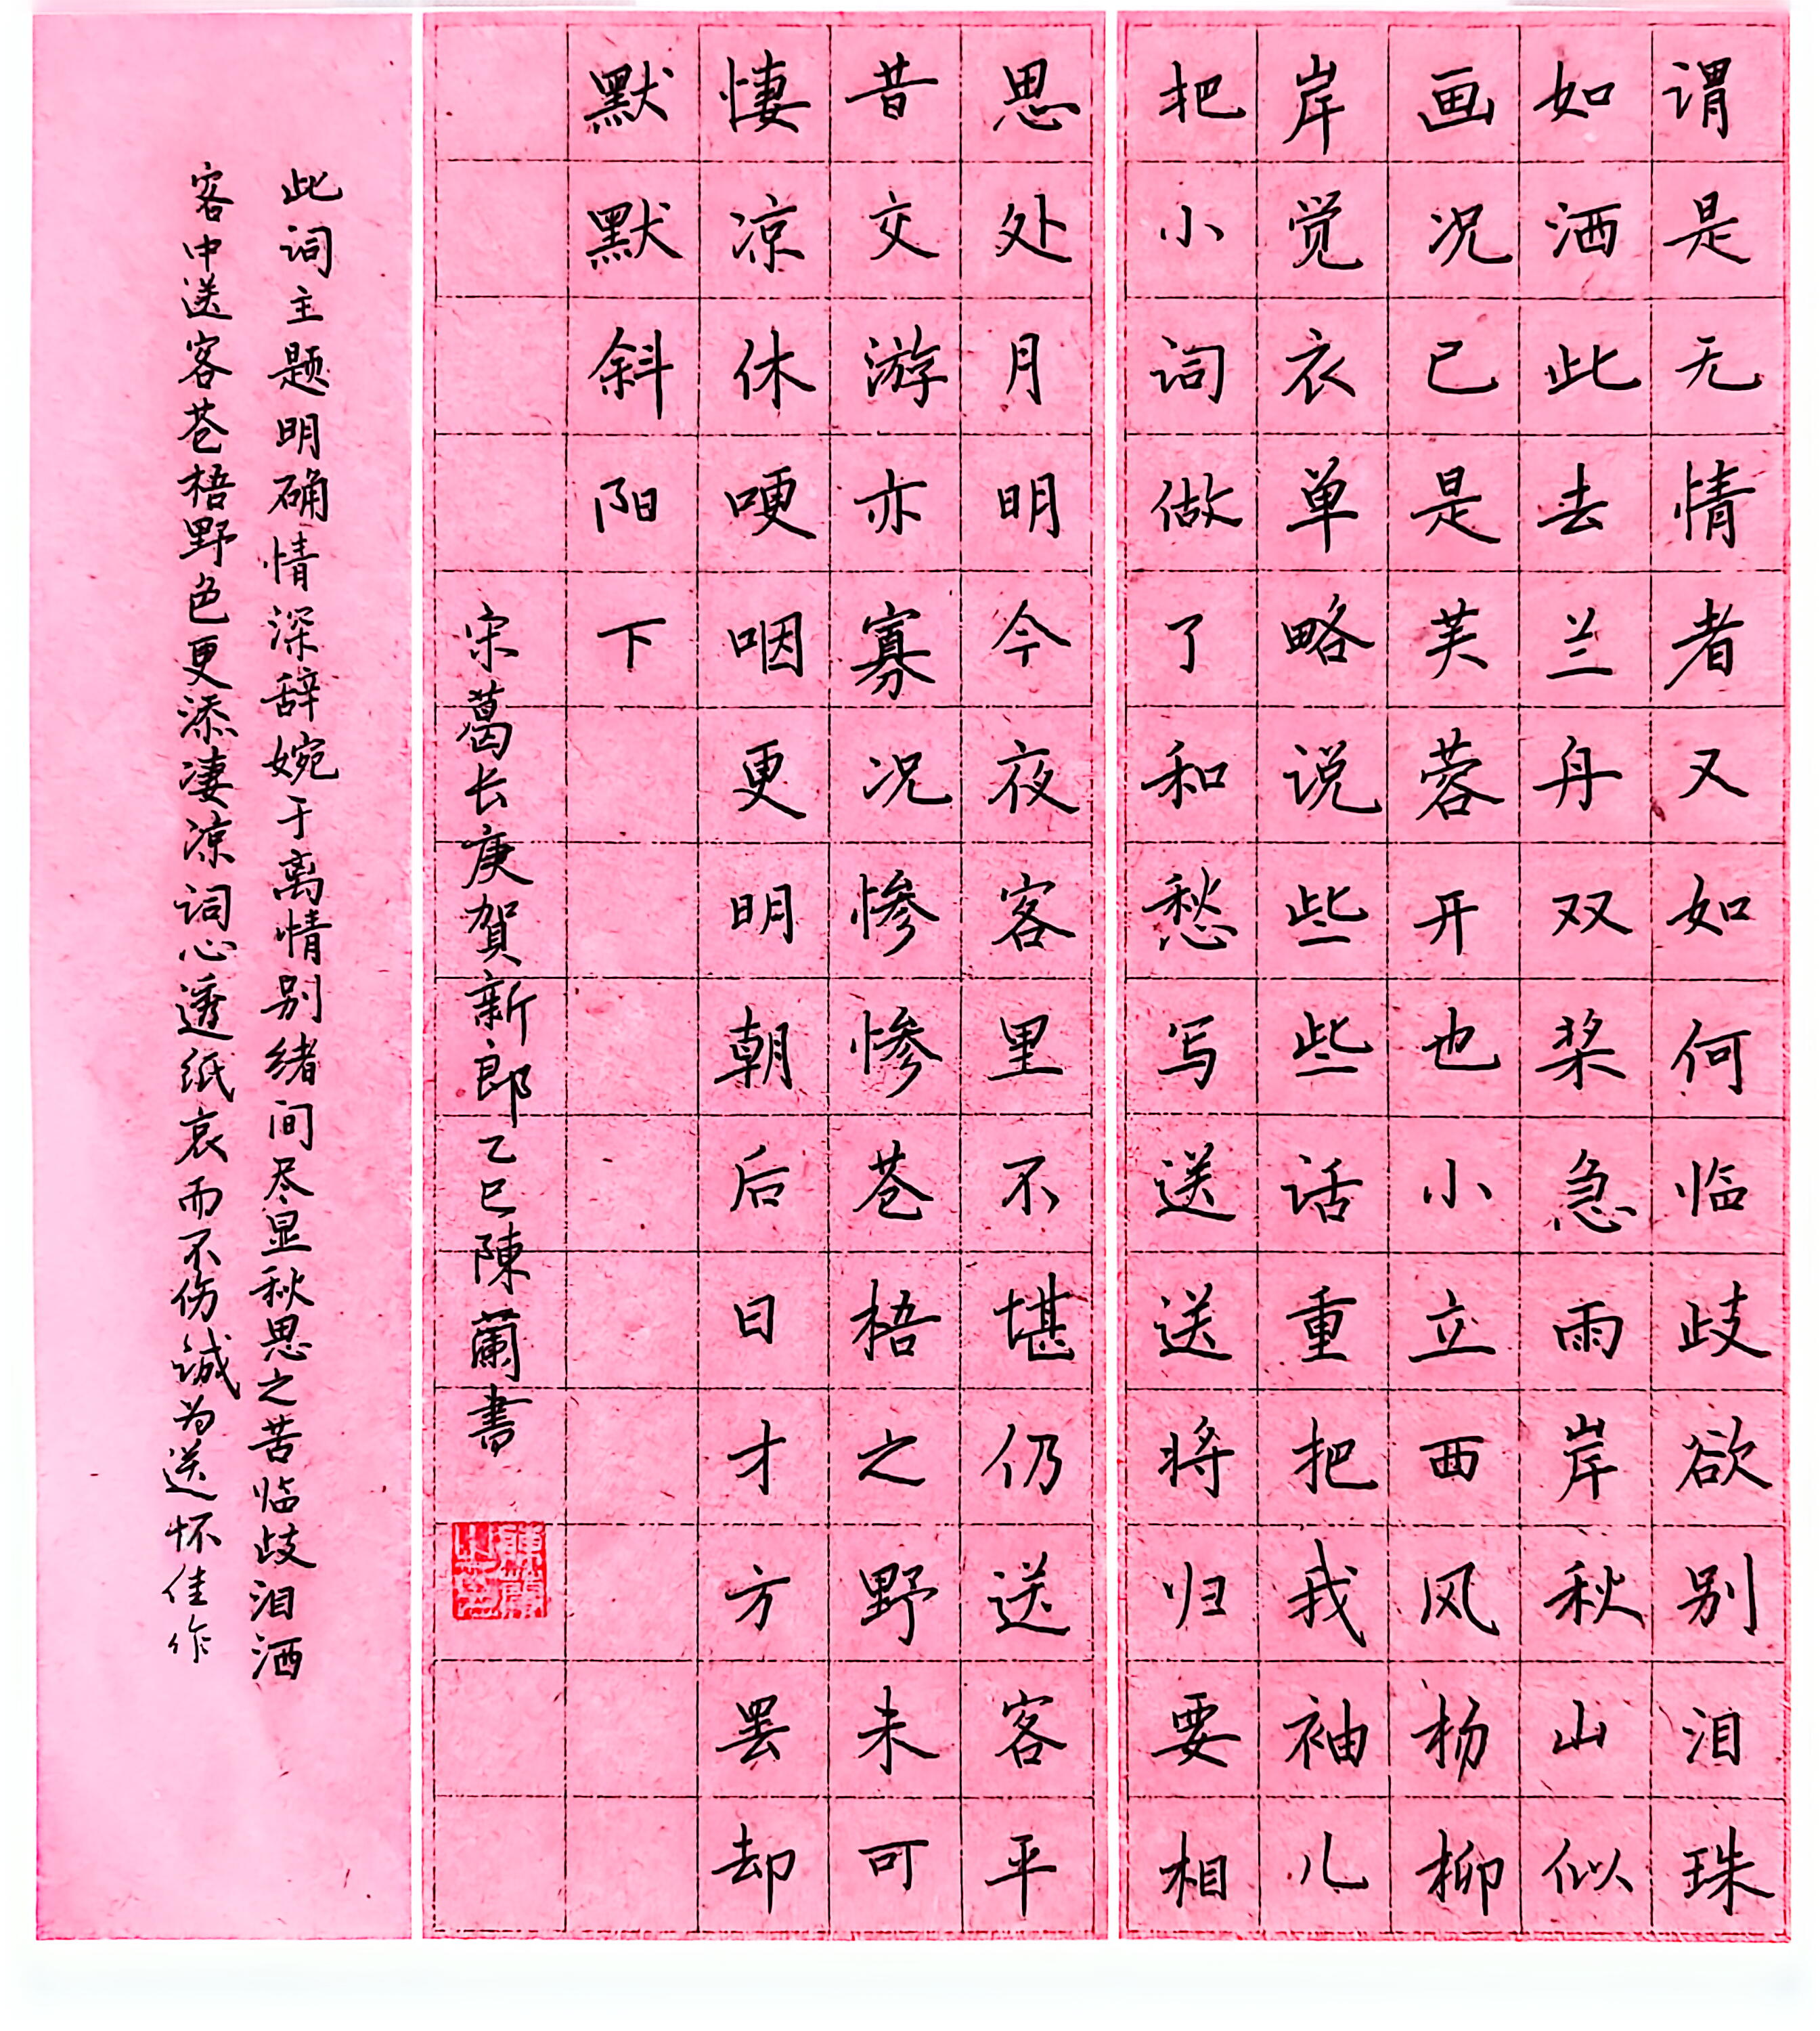 谓是无情者又如何临歧欲别泪珠
如洒此去兰舟双桨急雨岸秋山似
画况已是芙蓉开也小立西风杨柳
岸觉衣单略说些些话重把我袖儿
把小词做了和愁写送送将归要相
思处月明今夜客里不堪仍送客平
昔交游亦寡况惨惨苍梧之野未可
悽凉休哽咽更明朝后日才方罢却
默默斜阳下
宋葛长庚贺新郎乙巳陳蘭書
此词主题明确情深辞婉于离情别绪间尽显秋思之苦临歧泪洒
客中送客苍梧野色更添凄凉词心透纸哀而不伤诚为送怀佳作